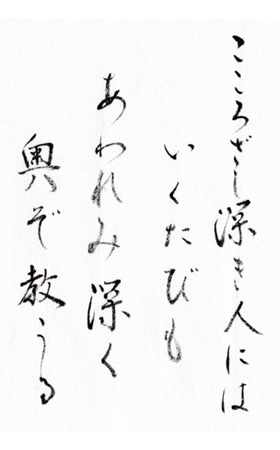 こころざし深き人には
いくたびも
あわれみ深く
奥ぞ教うる